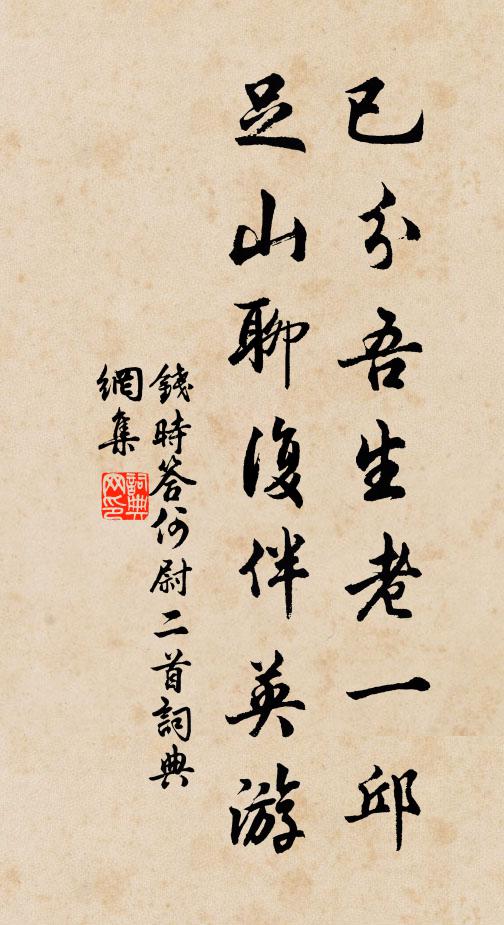 已分吾生老一邱
足山聊復伴英游
錢時答何尉二首詞典
網集
詞典網印